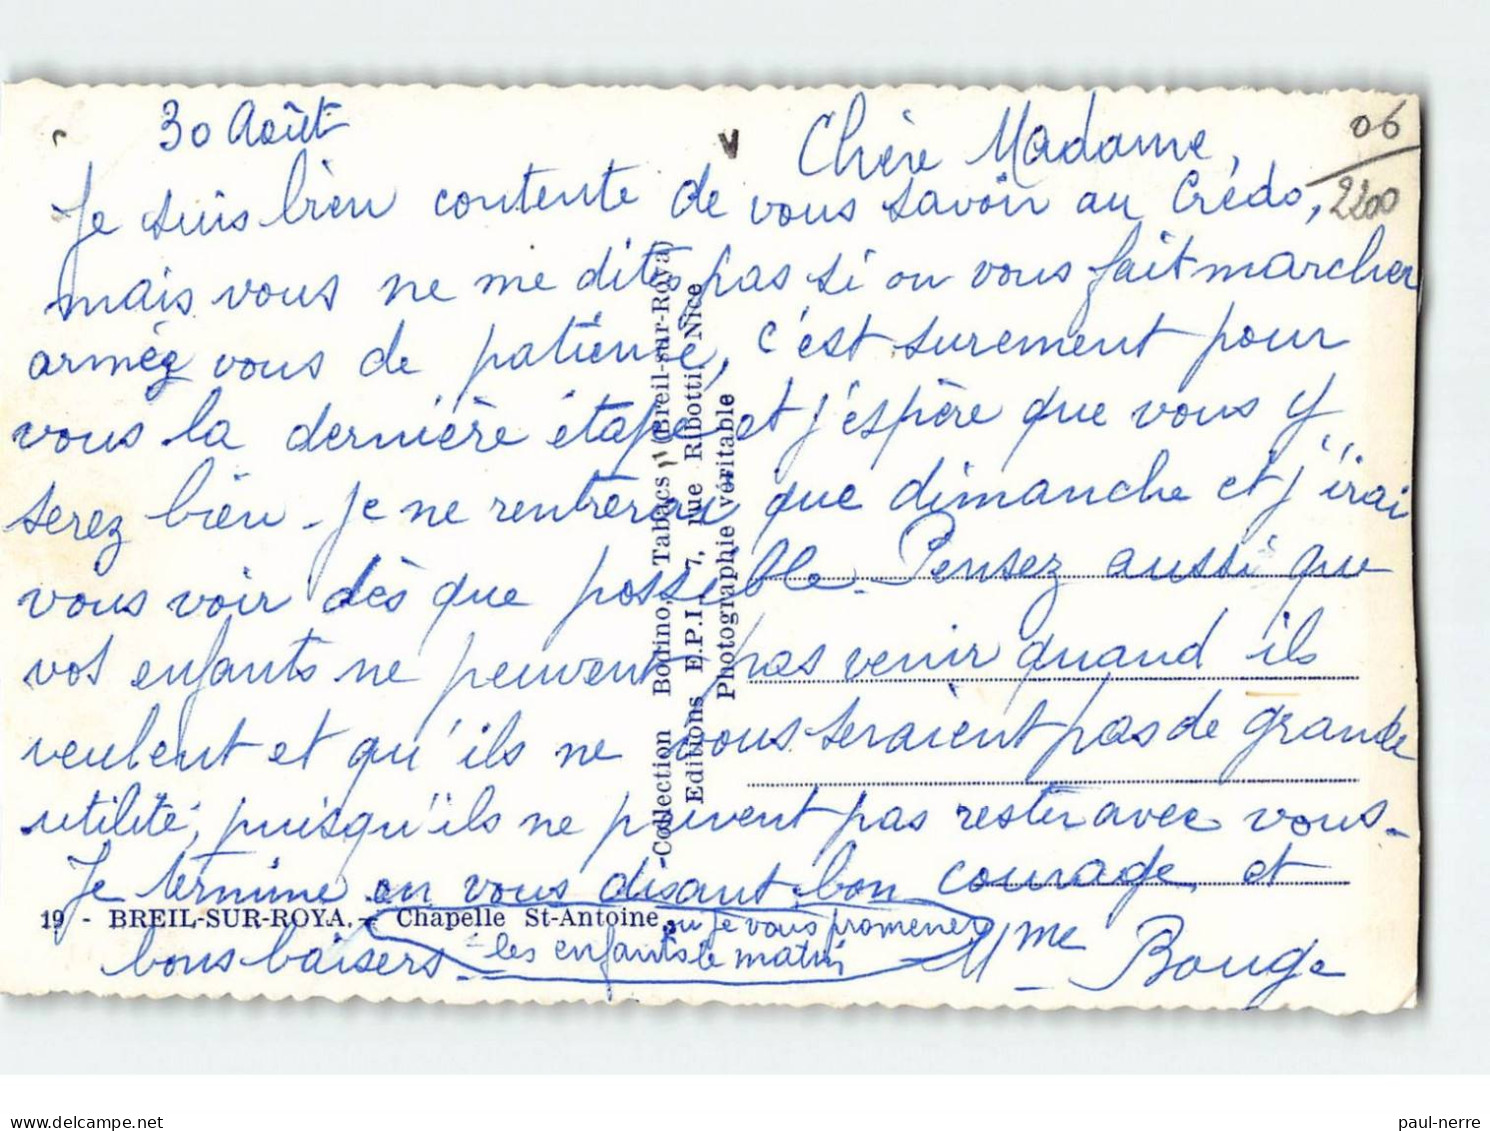 30 Août
Chère Madame,
06
2200
Je suis bien contente de vous savoir au Crédo,
mais vous ne me dites pas si on vous fait marcher
armèz vous de patience, c'est surement pour
vous la dernière étape et j'espère que vous y
serez bien - je ne rentrerai que dimanche et j'irai
vous voir dès que possible. Pensez aussi que
vos enfants ne peuvent pas venir quand ils
veulent et qu'ils ne vous seraient pas de grande
utilité, puisqu'ils ne peuvent pas rester avec vous -
Je termine en vous disant bon courage et
bons baisers - Mme Bouge
19 - BREIL-SUR-ROYA. - Chapelle St-Antoine
où je vous promener
les enfants le matin
Collection Bodino, Tabacs (Breil-sur-Roya)
Editions E.P.I. 7, rue Ribotti, Nice
Photographie véritable
paul-nerre
delcampe.net